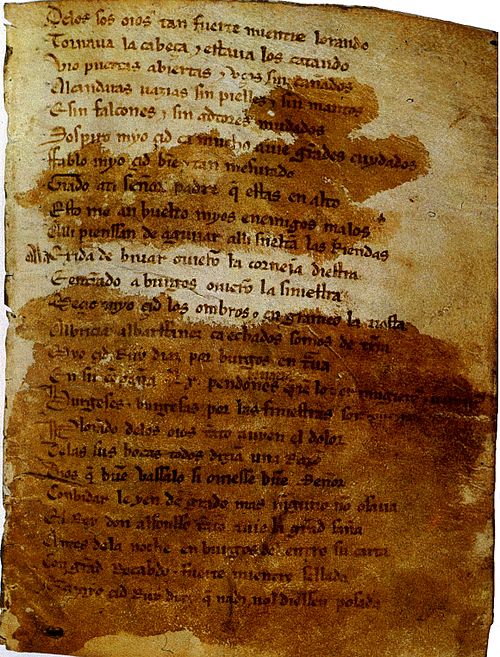 Delos sos oios tan fuerte mientre lorando
Tornava la cabeça ⁊ estava los catando
Vio puertas abiertas ⁊ vços sin cañados
Alcandaras uazias sin pielles ⁊ sin mantos
E sin falcones ⁊ sin adtores mudados
Sospiro myo çid ca mucho auie grãdes cuydados
Fablo myo çid bien ⁊ tan mesurado
Grado ati señor padre q̃ estas en alto
Esto me an buelto myos enemigos malos
Alli pienssan de aguiiar alli sueltã las Riendas
Exida de biuar ouierõ la corneja diestra
Entrãdo a burgos ouierõ la siniestra
Meçio myo çid los ombros ⁊ en grameo la tiesta
Albricia albarffanez ca echados somos de tr̃ra
Myo çid Ruy diaz por burgos en trava
En su cõpaña .Lx. pendones
Burgeses ⁊ burgesas por las finiestras son
Plorãdo delos oios tãto auyen el dolor
Delas sus bocas todos dizian una Razõ
Dios q̃ buẽ vassalo si ouiesse buẽ Señor
Conbidar le yen de grado mas ninguno no osaua
El Rey don alfonsso tãto auie la grãd saña
Antes dela noche en burgos del entro su carta
Con grãd Recabdo ⁊ fuerte mientre sellada
Que a myo çid Ruy diaz q̃ nadi nol diessen posada